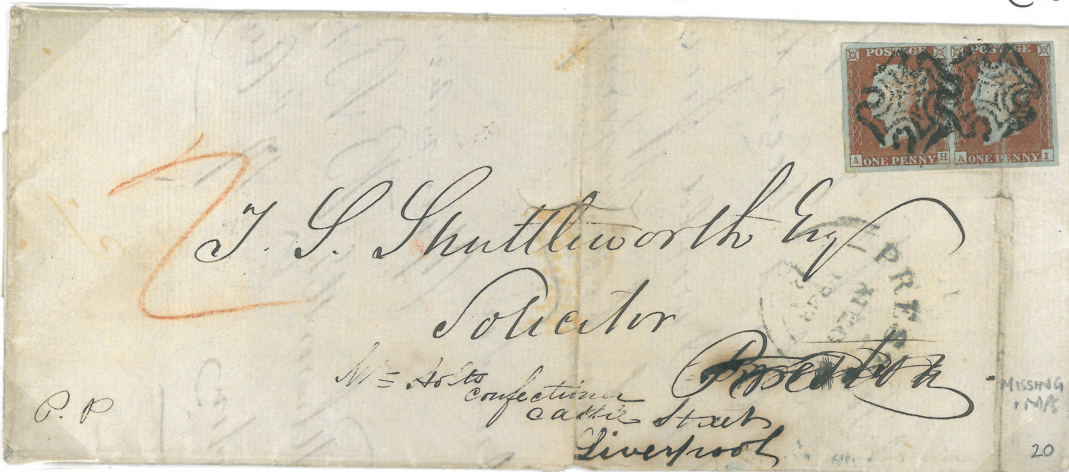 POSTAGE POSTAGE
A ONE PENNY H A ONE PENNY I
2
T. S. Shuttleworth Esq
Solicitor
Preston
PRES
1843
Mrs Holts
confectioner
castle Street
Liverpool
P. P
MISSING
20